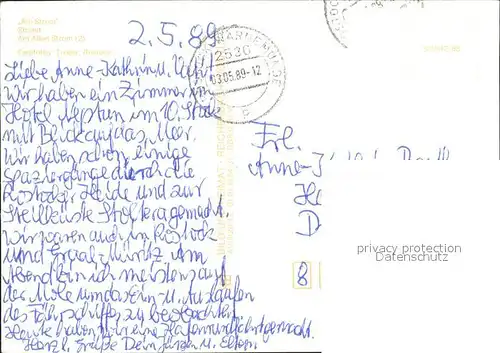 2.5.89
Liebe Anne-Kathrin u.
Wir haben ein Zimmer im
Hotel Neptun im 10. Stock
mit Blick auf das Meer.
Wir haben schon einige
Spaziergänge durch die
Rostocker Heide und zur
Steilküste Stoltera gemacht.
Wir waren auch in Rostock
und Graal-Müritz. Am
Abend bin ich meistens auf
der Mole um das Ein- u. Auslaufen
des Fährschiffes zu beobachten.
Heute haben wir eine Hafenrundfahrt gemacht.
Herzl. Grüße Dein Jürgen u. Eltern
2530
03.05.89-12
Frl.
Anne-
8
privacy protection
Datenschutz